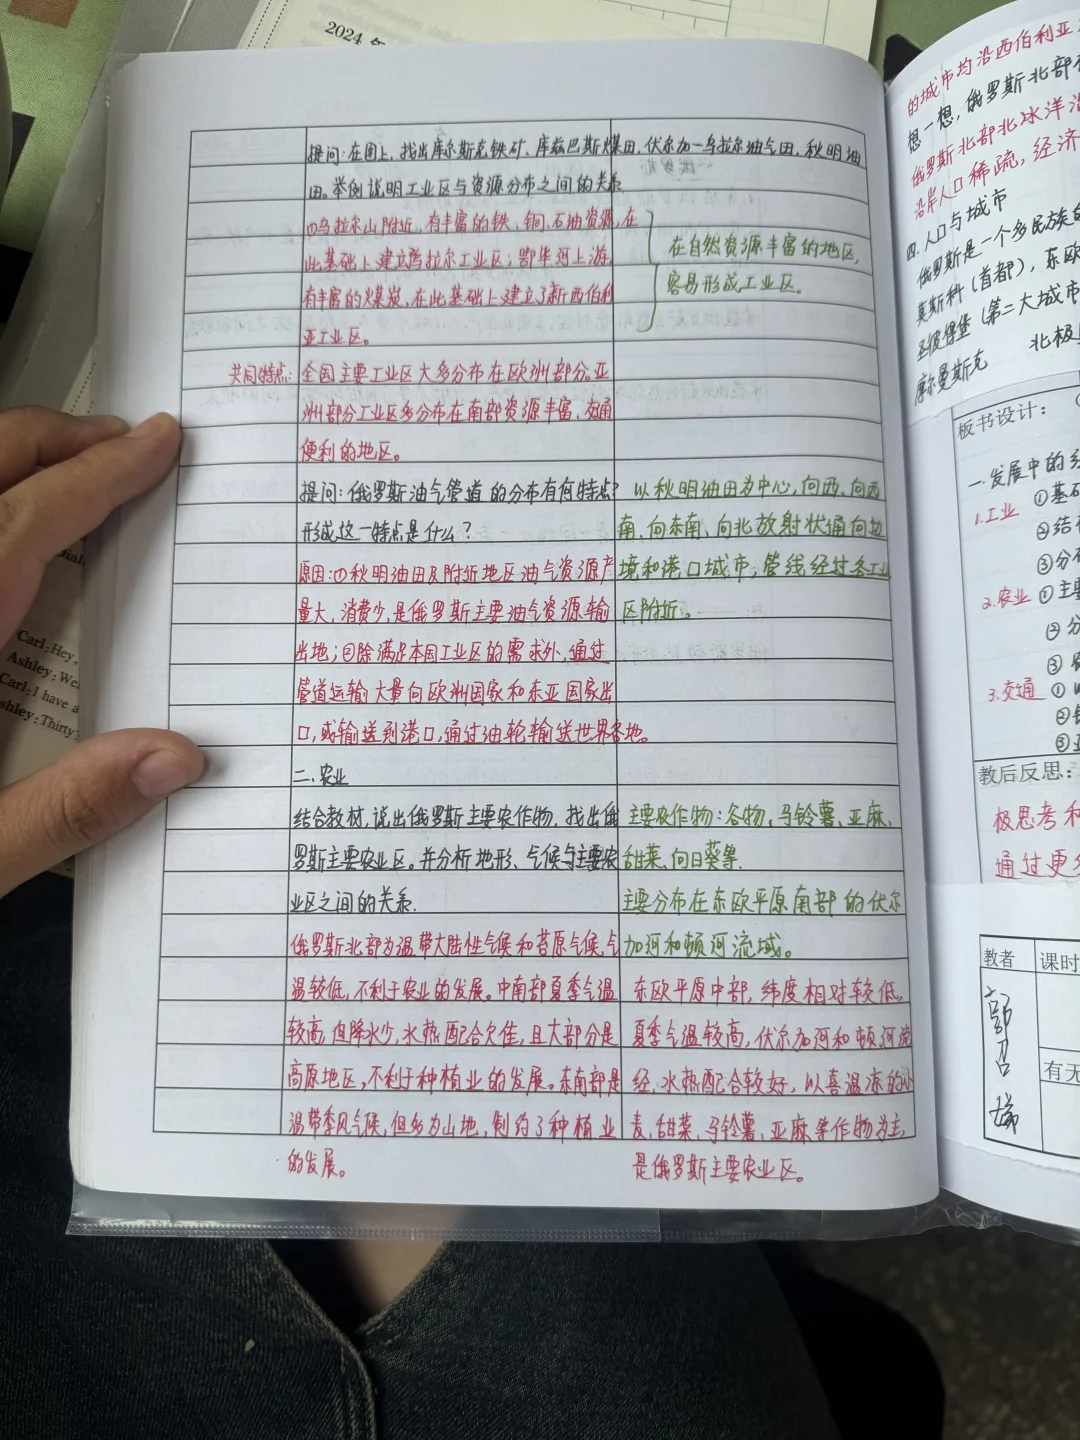 2024 年
提问:在图上,找出库尔斯克铁矿、库兹巴斯煤田,伏尔加—乌拉尔油气田,秋明油
田。举例说明工业区与资源分布之间的关系
①乌拉尔山附近,有丰富的铁、铜、石油资源,在
此基础上建立乌拉尔工业区;鄂毕河上游,
有丰富的煤炭,在此基础上建立了新西伯利
亚工业区。
在自然资源丰富的地区,
容易形成工业区。
共同特点:全国主要工业区大多分布在欧洲部分。亚
洲部分工业区多分布在南部资源丰富,交通
便利的地区。
提问:俄罗斯油气管道的分布有何特点?
形成这一特点是什么?
以秋明油田为中心,向西、向西
南、向东南、向北放射状通向边
境和港口城市,管线经过各工业
区附近。
原因:①秋明油田及附近地区油气资源产
量大,消费少,是俄罗斯主要油气资源输
出地;②除满足本国工业区的需求外,通过
管道运输大量向欧洲国家和东亚国家出
口,或输送到港口,通过油轮输送世界各地。
二.农业
结合教材,说出俄罗斯主要农作物,找出俄
罗斯主要农业区。并分析地形、气候与主要农
业区之间的关系.
主要农作物:谷物、马铃薯、亚麻、
甜菜、向日葵等.
主要分布在东欧平原南部的伏尔
加河和顿河流域。
俄罗斯北部为温带大陆性气候和苔原气候,气
温较低,不利于农业的发展。中南部夏季气温
较高,但降水少,水热配合欠佳,且大部分是
高原地区,不利于种植业的发展。东南部是
温带季风气候,但多为山地,制约了种植业
的发展。
东欧平原中部,纬度相对较低,
夏季气温较高,伏尔加河和顿河流
经,水热配合较好,以喜温凉的小
麦、甜菜、马铃薯、亚麻等作物为主,
是俄罗斯主要农业区。
的城市均沿西伯利亚
想一想,俄罗斯北部
俄罗斯北部北冰洋沿
沿岸人口稀疏,经济
四.人口与城市
俄罗斯是一个多民族的
莫斯科(首都),东欧
圣彼得堡(第二大城市
摩尔曼斯克 北极
板书设计:
一.发展中的
1.工业 ①基
②结
③分布
2.农业 ①主
②分
③
3.交通 ①
②
③
教后反思:
极思考和
通过更
教者 课时
有无
Carl:Hey,
Ashley:We
Carl:I have a
shley:Thirty?